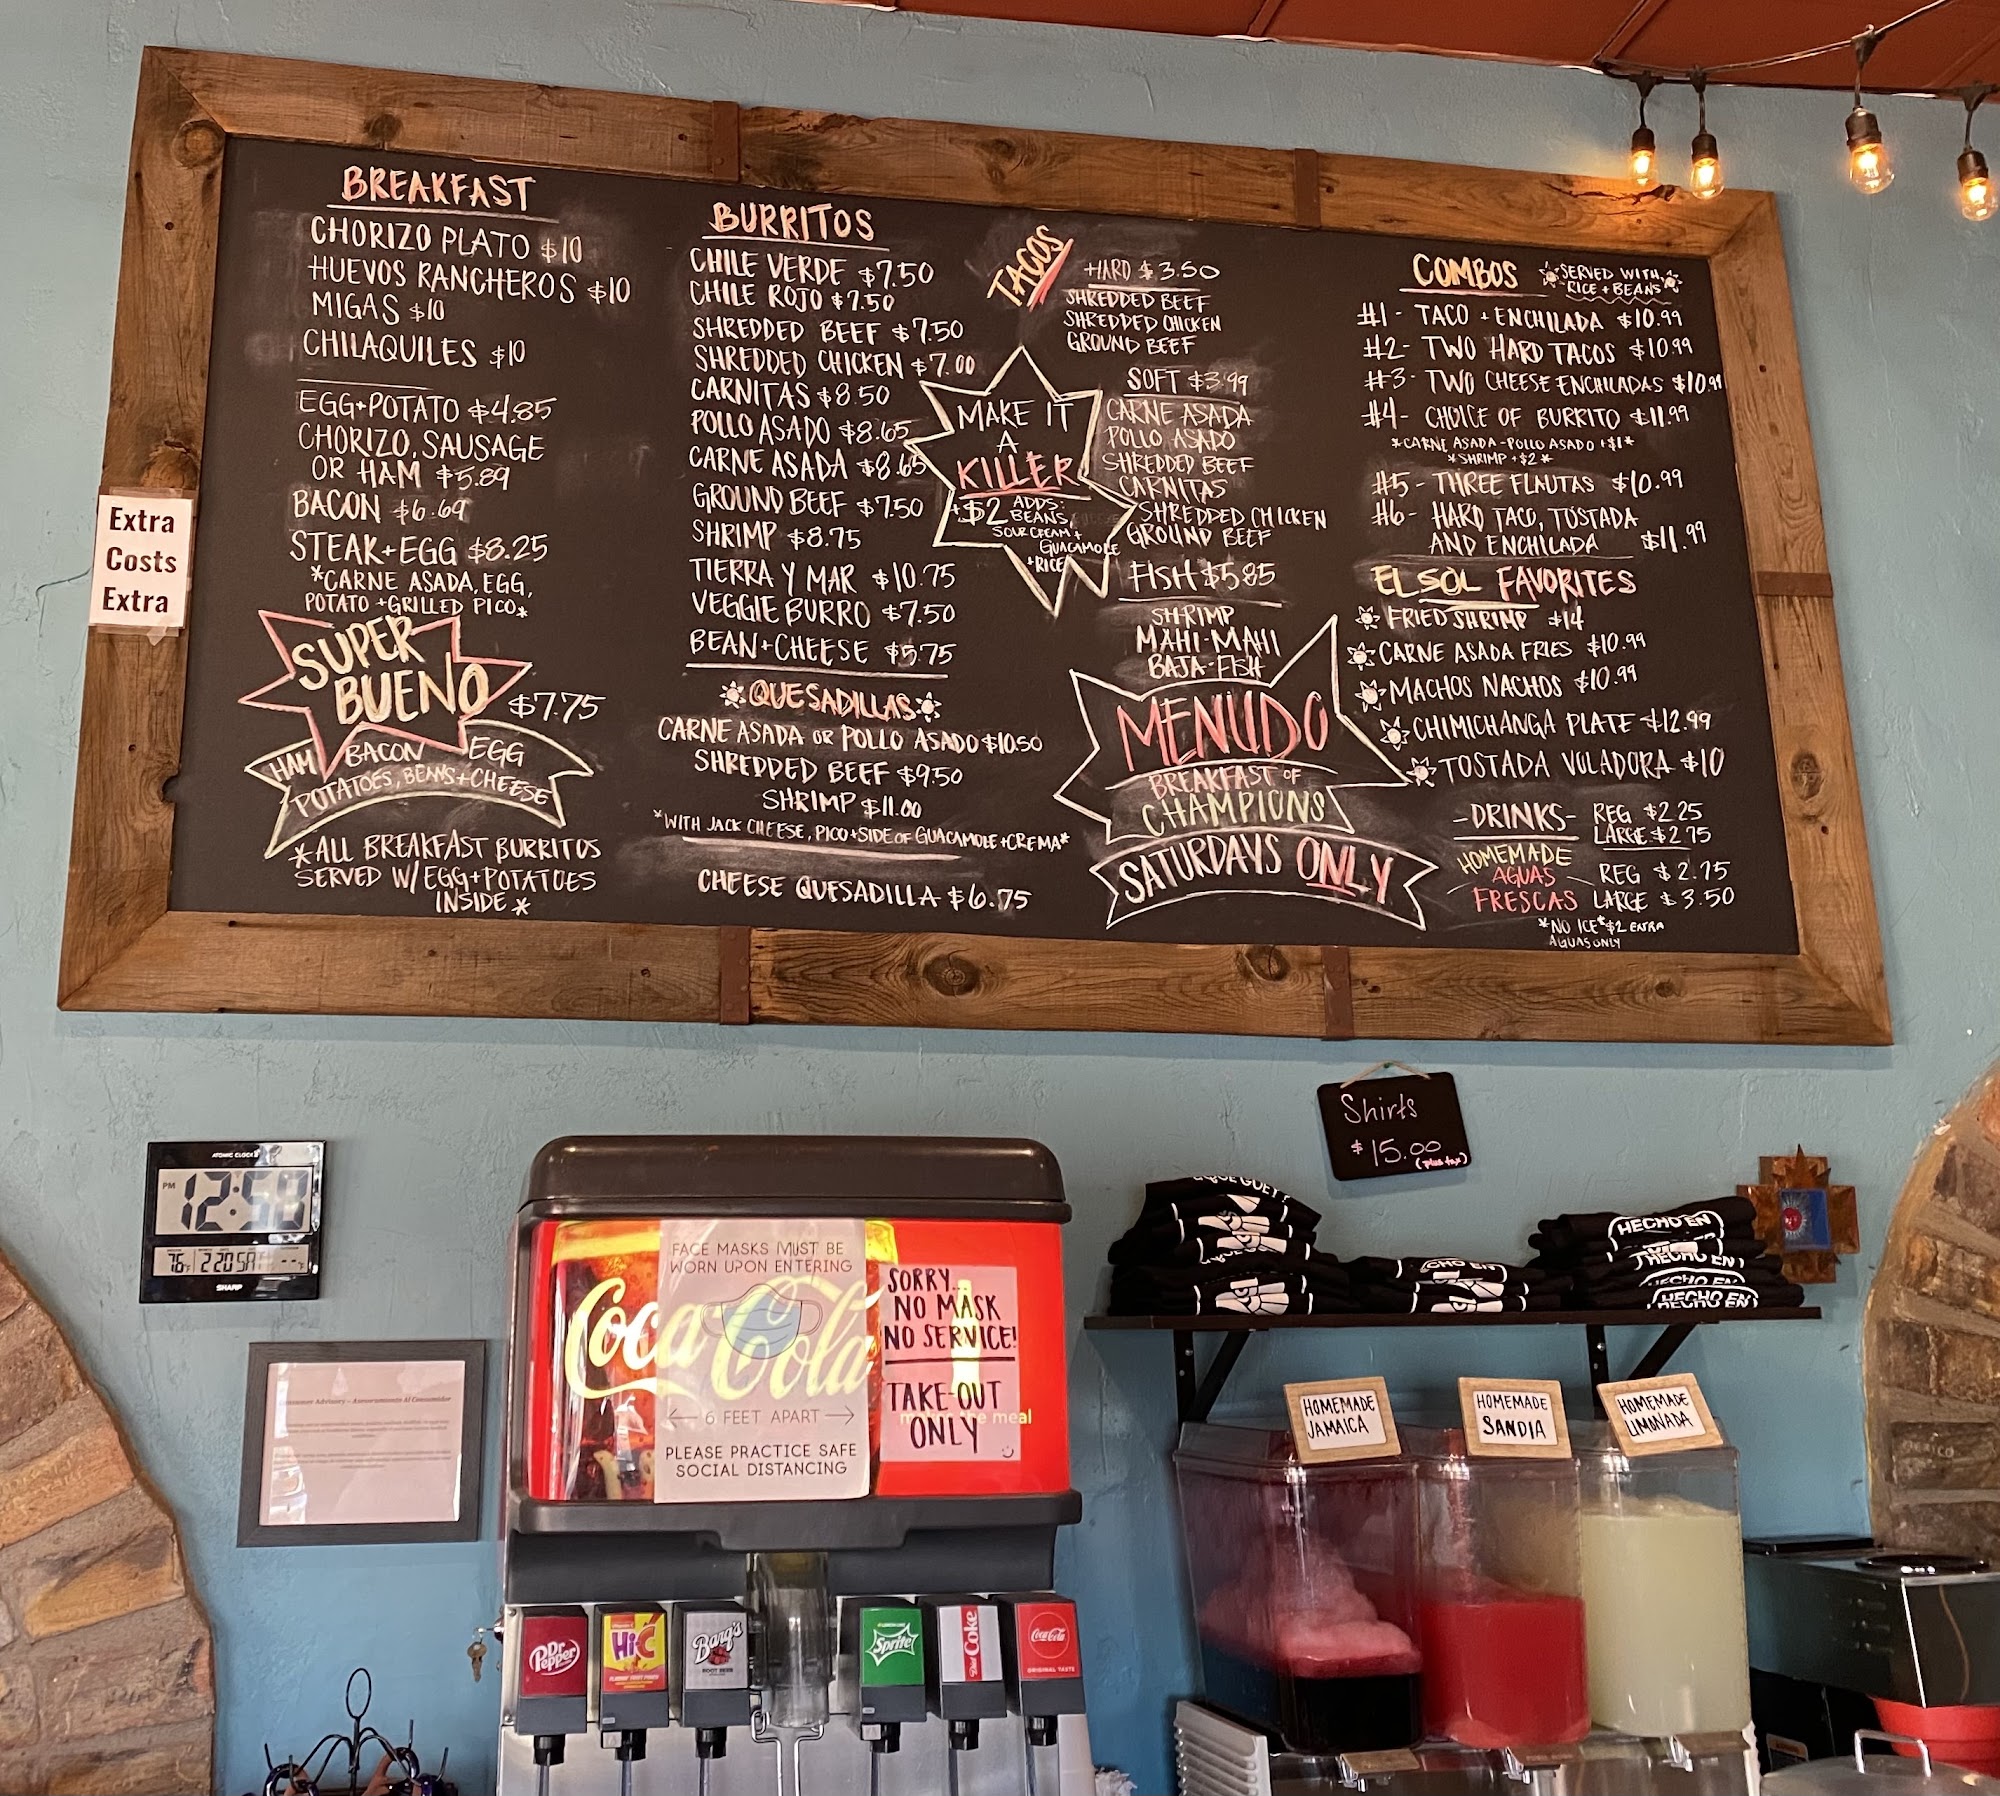 BREAKFAST
CHORIZO PLATO $10
HUEVOS RANCHEROS $10
MIGAS $10
CHILAQUILES $10
EGG+POTATO $4.85
CHORIZO, SAUSAGE
OR HAM $5.89
BACON $6.69
STEAK+EGG $8.25
*CARNE ASADA, EGG,
POTATO + GRILLED PICO*
SUPER
BUENO $7.75
HAM BACON EGG
POTATOES, BEANS+CHEESE
*ALL BREAKFAST BURRITOS
SERVED W/ EGG+POTATOES
INSIDE*
Extra
Costs
Extra
BURRITOS
CHILE VERDE $7.50
CHILE ROJO $7.50
SHREDDED BEEF $7.50
SHREDDED CHICKEN $7.00
CARNITAS $8.50
POLLO ASADO $8.65
CARNE ASADA $8.65
GROUND BEEF $7.50
SHRIMP $8.75
TIERRA Y MAR $10.75
VEGGIE BURRO $7.50
BEAN+CHEESE $5.75
QUESADILLAS
CARNE ASADA OR POLLO ASADO $10.50
SHREDDED BEEF $9.50
SHRIMP $11.00
*WITH JACK CHEESE, PICO+SIDE OF GUACAMOLE+CREMA*
CHEESE QUESADILLA $6.75
MAKE IT
A
KILLER
+$2 ADDS:
BEANS,
SOUR CREAM +
GUACAMOLE
+RICE
TACOS
HARD $3.50
SHREDDED BEEF
SHREDDED CHICKEN
GROUND BEEF
SOFT $3.99
CARNE ASADA
POLLO ASADO
SHREDDED BEEF
CARNITAS
SHREDDED CHICKEN
GROUND BEEF
FISH $5.85
SHRIMP
MAHI-MAHI
BAJA-FISH
MENUDO
BREAKFAST OF
CHAMPIONS
SATURDAYS ONLY
COMBOS SERVED WITH
RICE + BEANS
#1 - TACO + ENCHILADA $10.99
#2 - TWO HARD TACOS $10.99
#3 - TWO CHEESE ENCHILADAS $10.99
#4 - CHOICE OF BURRITO $11.99
*CARNE ASADA - POLLO ASADO +$1*
*SHRIMP +$2*
#5 - THREE FLAUTAS $10.99
#6 - HARD TACO, TOSTADA
AND ENCHILADA $11.99
EL SOL FAVORITES
FRIED SHRIMP $14
CARNE ASADA FRIES $10.99
MACHOS NACHOS $10.99
CHIMICHANGA PLATE $12.99
TOSTADA VOLADORA $10
-DRINKS- REG $2.25
LARGE $2.75
HOMEMADE
AGUAS
FRESCAS
REG $2.75
LARGE $3.50
*NO ICE* $2 EXTRA
AGUAS ONLY
Shirts
$15.00
(plus tax)
ATOMIC CLOCK
PM 12:58
76 2 20 SA
SHARP
Consumer Advisory - Asesoramiento Al Consumidor
FACE MASKS MUST BE
WORN UPON ENTERING
Coca-Cola
6 FEET APART
PLEASE PRACTICE SAFE
SOCIAL DISTANCING
SORRY...
NO MASK
NO SERVICE!
TAKE-OUT
ONLY
Dr Pepper
Hi-C
Barq's
ROOT BEER
Sprite
Diet Coke
Coca-Cola
ORIGINAL TASTE
HECHO EN
HECHO EN
HECHO EN
HECHO EN
HOMEMADE
JAMAICA
HOMEMADE
SANDIA
HOMEMADE
LIMONADA